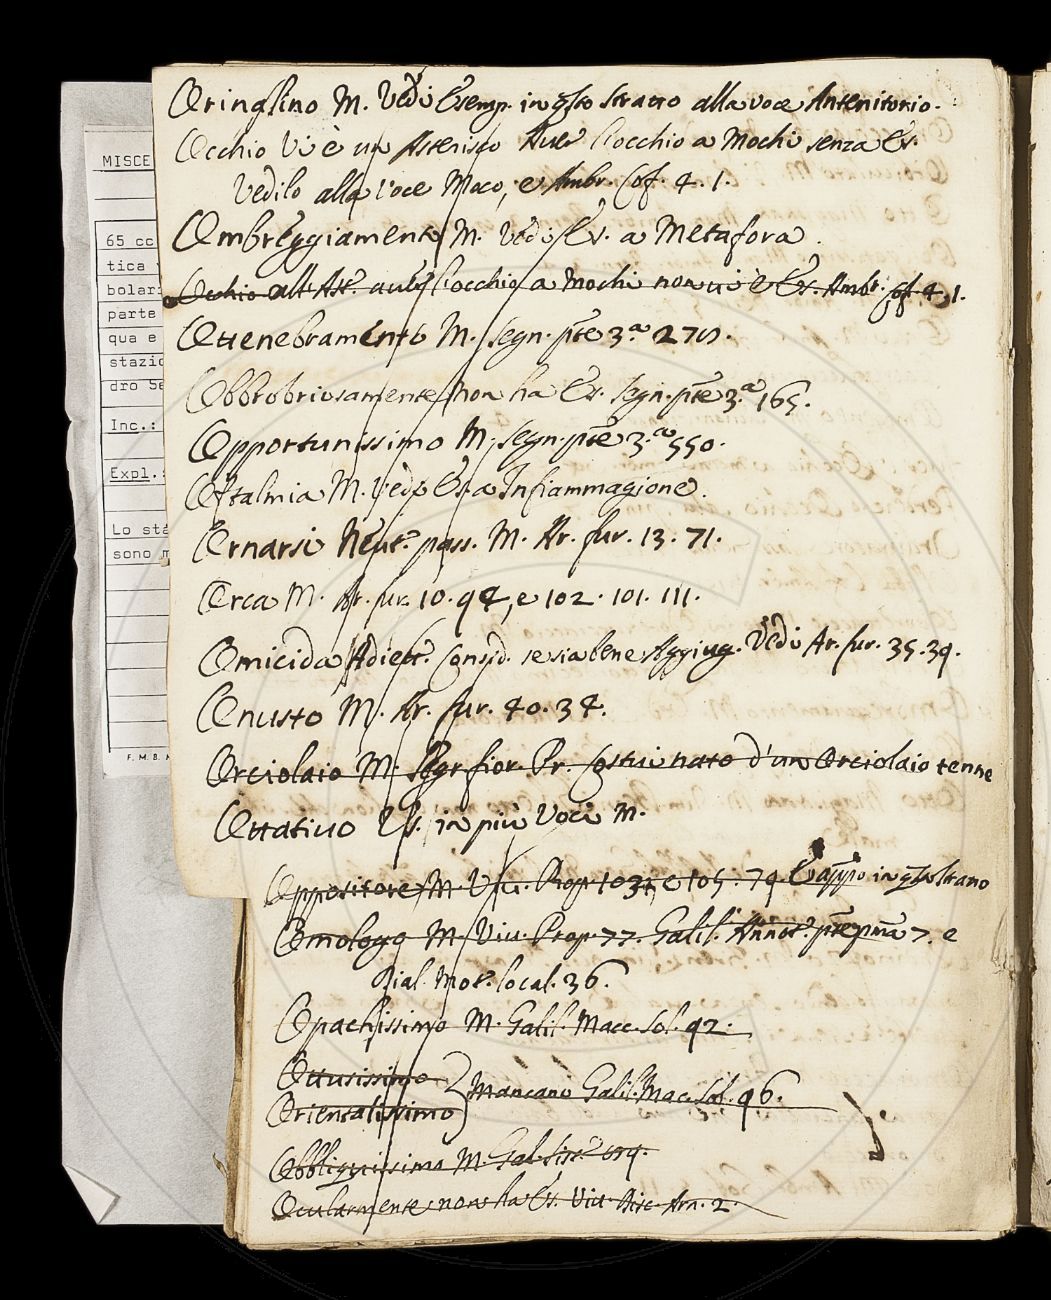 Oringlino M. Vedi Esemp. in qsto stratto alla voce Antenitorio.
Occhio Vi è un Asterisco Aver l'occhio a Mochi senza Es.
Vedilo alla Voce Moco, e Ambr. Cof. 4. 1.
Ombreggiamento M. Vedi Es. a Metafora.
Occhio all'Ast.o aver l'occhio a Mochi non vi è Es. Ambr. Cof. 4. 1.
Ottenebramento M. Segn. pte 3.a
Obbrobriosamente non ha Es. Segn. pte 3.a 165.
Opportunissimo M. Segn. pte 3.a 550.
Oftalmia M. Vedi Es. a Infiammagione.
Ornarsi Neut.o pass. M. Ar. fur. 13. 71.
Orca M. Ar. fur. 10. 94, e 102. 101. 111.
Omicida Adiett. Consid. se sia bene Aggiug. Vedi Ar. fur. 35. 39.
Onusto M. Ar. fur. 40. 34.
Orciolaio M. Segr. fior. Pr. Costui nato d'un Orciolaio tenne
Ottativo Es. in più Voci M.
Oppositore M. Viv. Prop. e 105. 79 in qsto strano
Omologo M. Viv. Prop. 77. Galil. Annot. pte pma 7. e
Dial. Mot. local. 36.
Opachissimo M. Galil. Macc. Sol. 92.
Ottusissimo
Orientalissimo } Mancano Galil. Mac. Sol. 96.
Obbliquissimo M. Gal. Sist.
Ocularmente non ha Es. Viv. Disc. Arn. 2.
MISCE
65 cc
tica
bolari
parte
qua e
stazio
dro Se
Inc.:
Expl.
Lo sta
sono m
F. M. B.